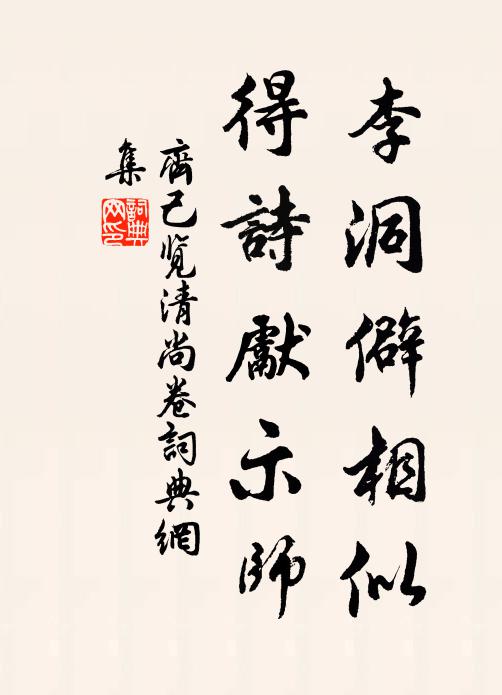 李洞僻相似
得詩獻示師
齊己覽清尚卷詞典網
集
詞典
网印